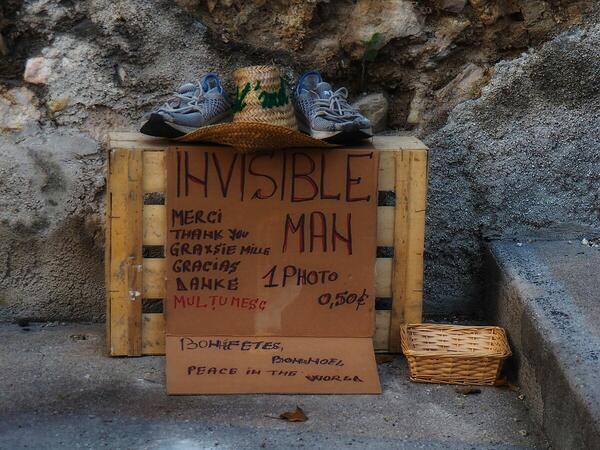 INVISIBLE
MAN
MERCI
THANK YOU
GRAXSIE MILLE
GRACIAS
DANKE
MULȚUMESC
1 PHOTO
0,50¢
BONNEFETES,
BONNNOEL
PEACE IN THE WORLD